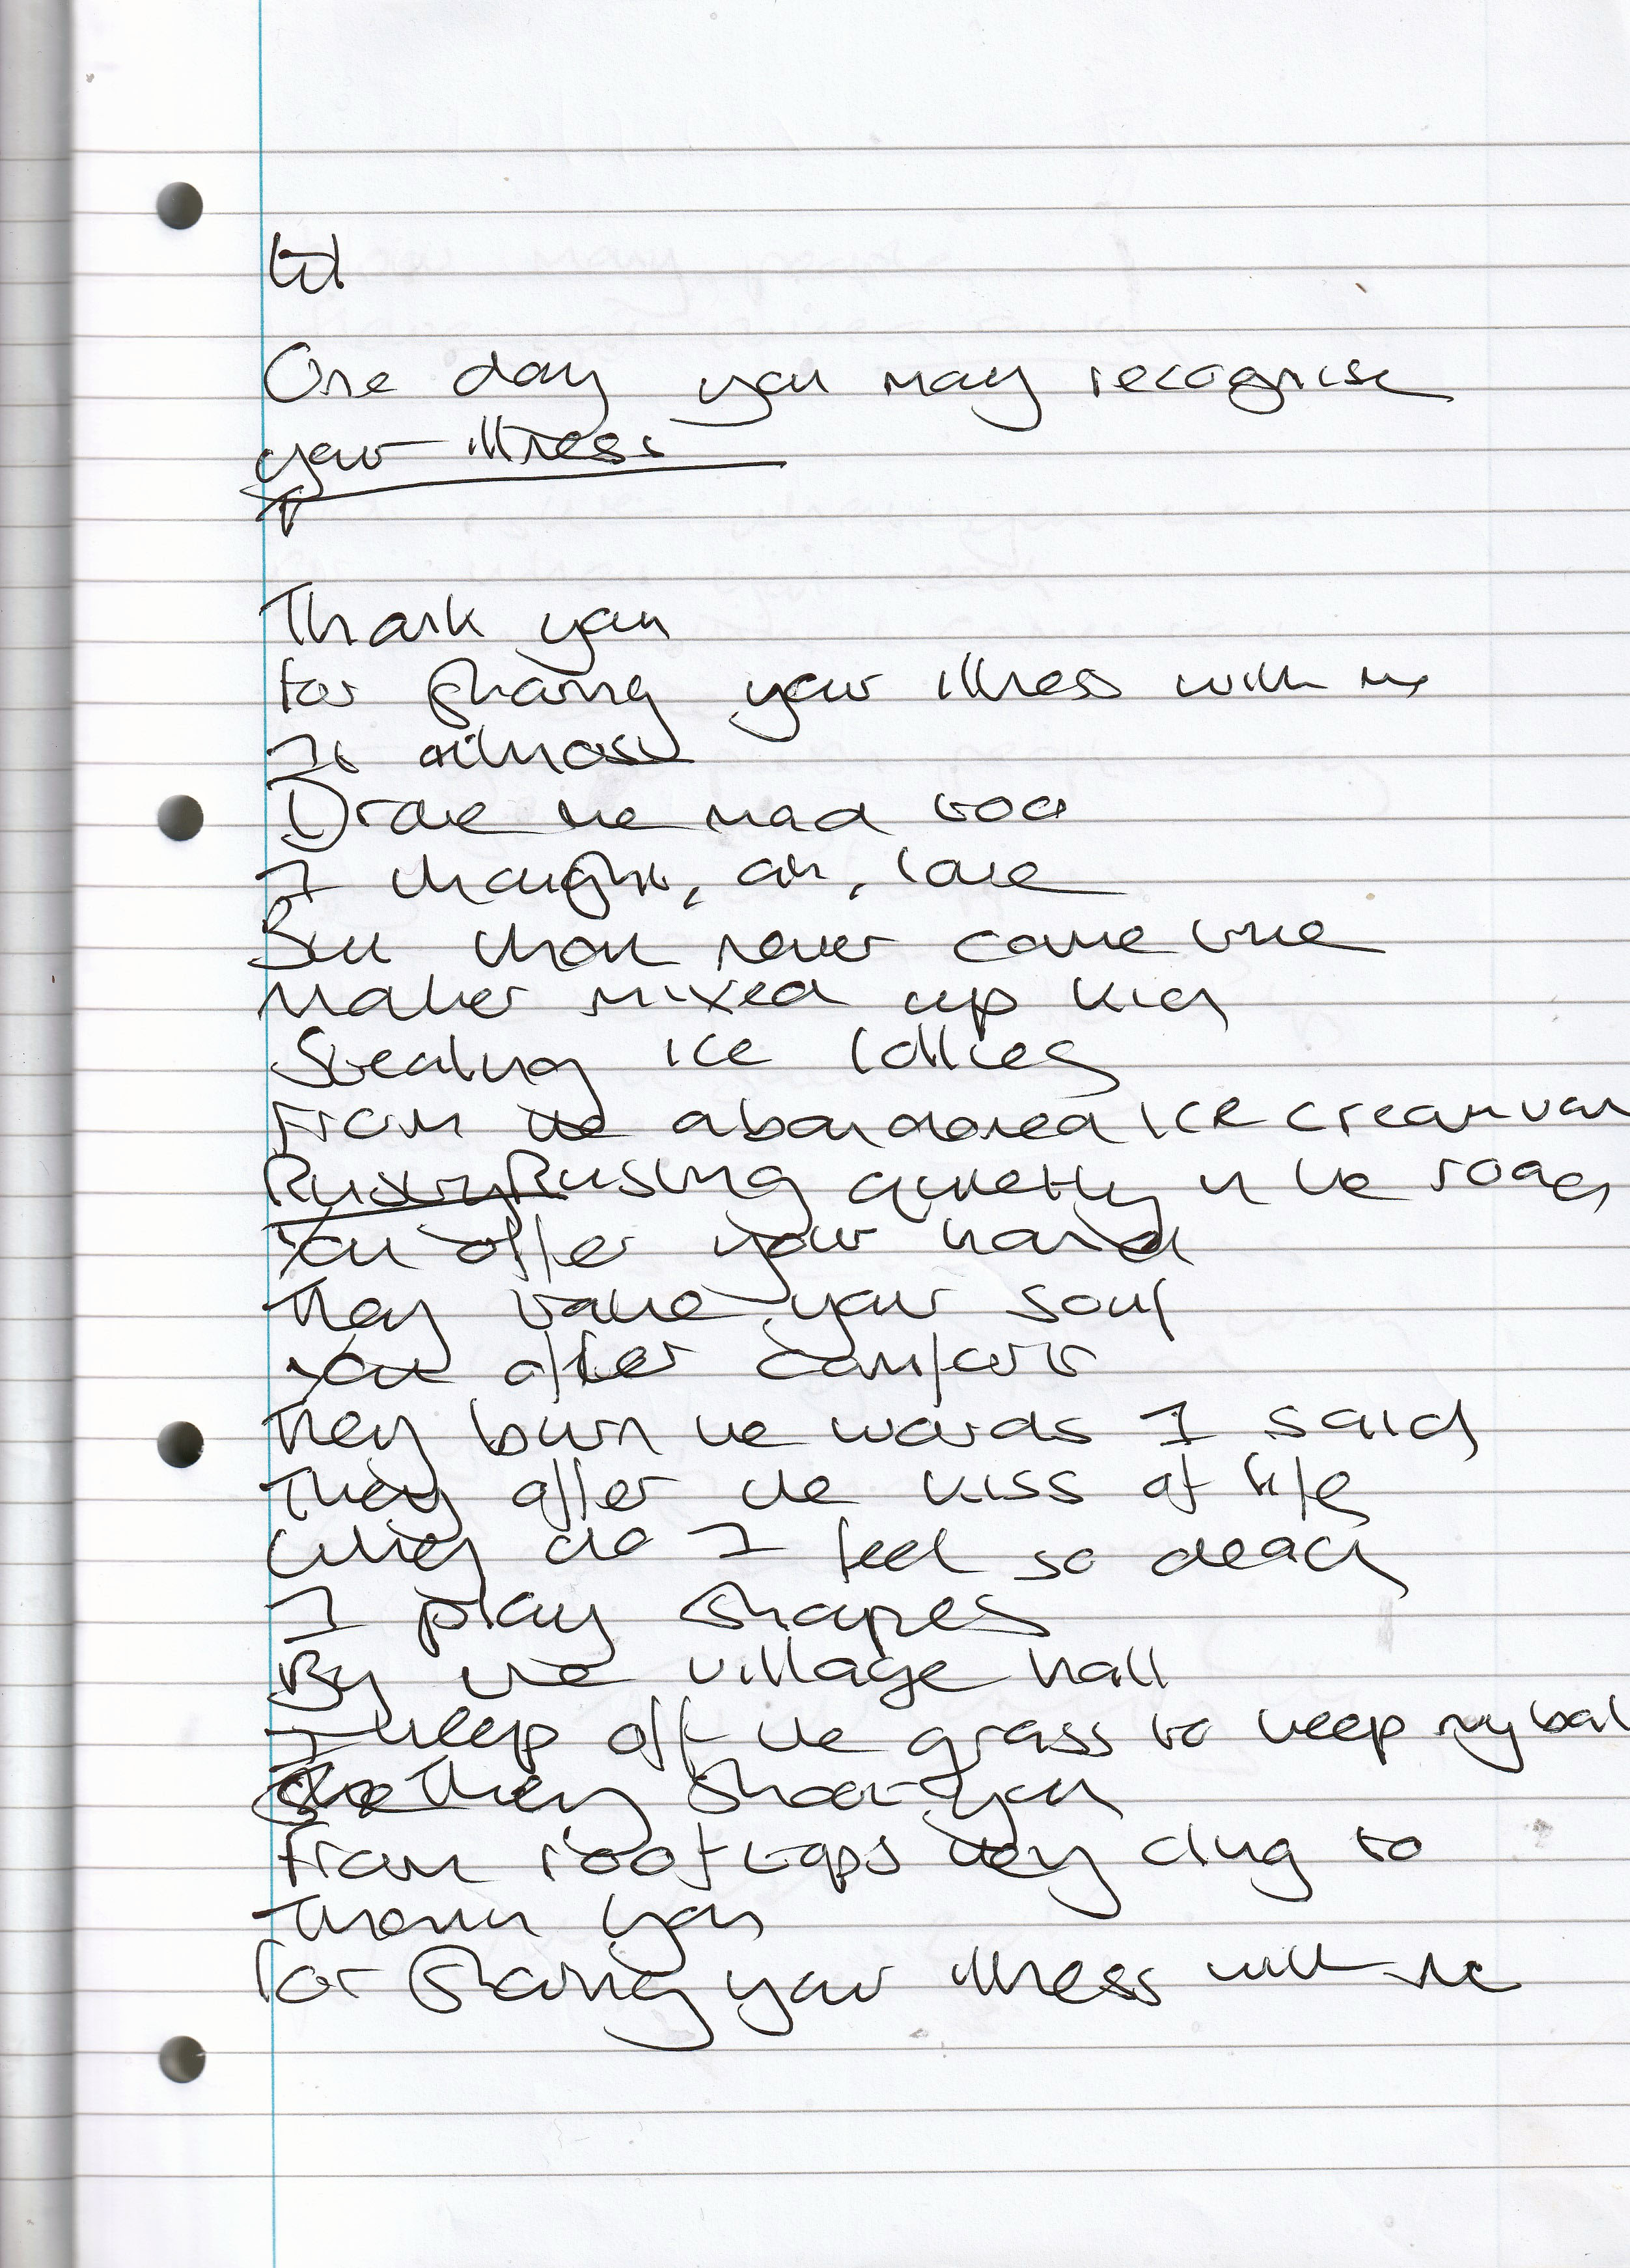 One day you may recognise
your illness
Thank you
for sharing your illness with me
It almost
Drove me mad too
I thought, ah, love
But that never came true
Mother mixed up kid
Stealing ice lollies
From the abandoned ice cream van
Rusty Rusting quietly in the road
You offer your hand
They take your soul
You offer comfort
They burn the words I said
They offer the kiss of life
Why do I feel so dead
I play shapes
By the village hall
I keep off the grass to keep my bal
They shoot you
From rooftops they cling to
Thank you
for sharing your illness with me